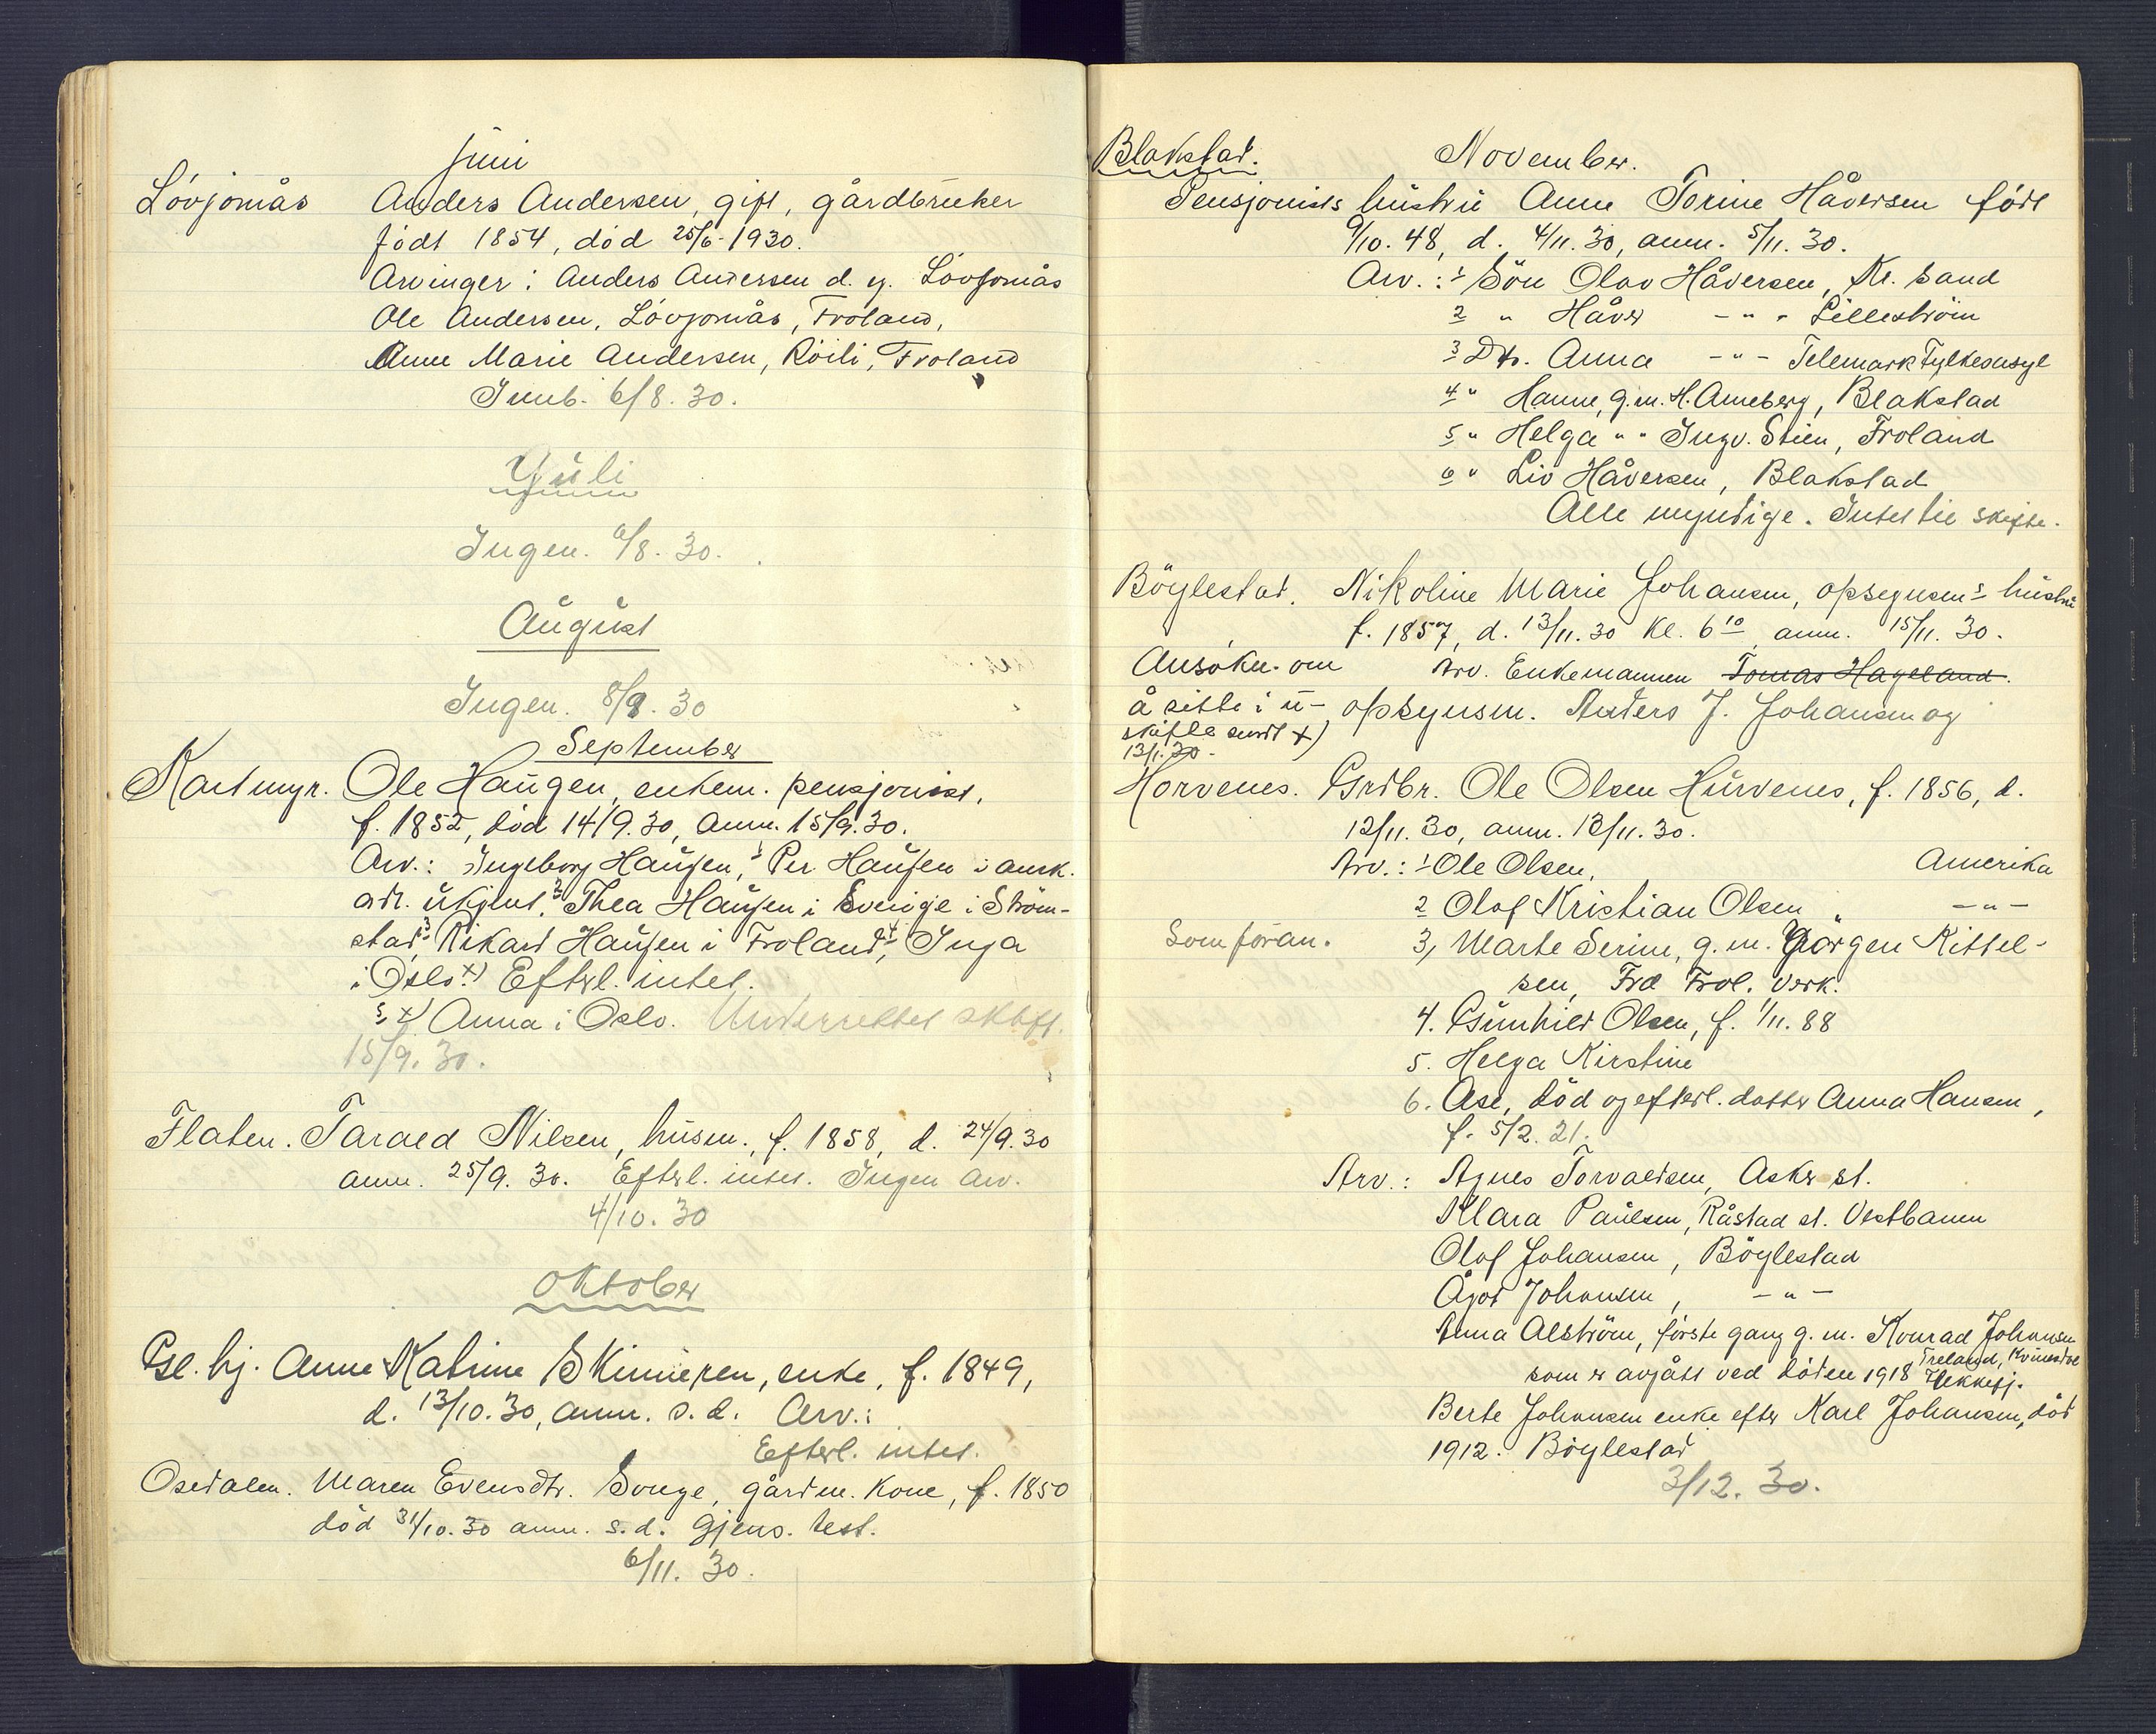 Juni
Lövjomås Anders Andersen, gift, gårdbruker
född 1854, död 25/6-1930.
Arvinger: Anders Andersen d. y. Lövjomås
Ole Andersen, Lövjomås, Froland,
Anne Marie Andersen, Röili, Froland
Innb. 6/8. 30.
Juli
Ingen. 6/8. 30.
August
Ingen. 8/9. 30
September
Kartmyr. Ole Haugen, enkem. pensjonist,
f. 1852, död 14/9. 30, anm. 15/9. 30.
Arv.: Ingeborg Haugen, 1 Per Haugen i amrk.
adr. ukjent, 2 Thea Haugen i Sverige i Ström-
stad, 3 Rikard Haugen i Froland, 4 Inga
i Oslo. x) Efterl. intet.
5 x) Anna i Oslo. Underrettet skift.
15/9. 30.
Flaten. Tarald Nilsen, husm., f. 1858, d. 24/9. 30
anm. 25/9. 30. Efterl. intet. Ingen arv.
4/10. 30
Oktober
Gl. hj. Anne Katrine Skinnepen, enke, f. 1849,
d. 13/10. 30, anm. s. d. Arv.:
Efterl. intet.
Osedalen. Maren Evensdtr. Songe, gårdm. kone, f. 1850
död 31/10. 30 anm. s. d. Gjens. test.
6/11. 30.
Blakstad. November.
Pensjonists hustru Anne Torine Håversen född
9/10. 48, d. 4/11. 30, anm. 5/11. 30.
Arv.: 1 Sön Olav Håversen, Kr. sand
2 " Håver - " - Lilleström
3 Dtr. Anna - " - Telemark Fylkesasyl
4 " Hanne, g. m. H. Anneberg, Blakstad
5 " Helga " " Ingv. Stien, Froland
6 " Liv Håversen, Blakstad
Alle myndige. Intet til skifte.
Böylestad. Nikoline Marie Johansen, opsynsm s hustru
f. 1857, d. 13/11. 30 kl. 6 10, anm. 15/11. 30.
Ansökn. om Arv. Enkemannen Tomas Hageland.
å sitte i u- opsynsm. Anders J. Johansen og
skifte sendt x)
13/1. 30.
Horvenes. Grdbr. Ole Olsen Hurvenes, f. 1856, d.
12/11. 30, anm. 13/11. 30.
Arv.: 1 Ole Olsen, Amerika
2 Olaf Kristian Olsen, - " -
Som foran. 3, Marte Serine, g. m. Jörgen Kittel-
sen, Frd Frol. Verk.
4. Gunhild Olsen, f. 1/11. 88
5. Helga Kirstine
6. Ase, död og efterl. datter Anna Hansen,
f. 5/2. 21.
Arv.: Agnes Torvaldsen, Asker st.
Klara Paulsen, Råstad st. Vestbanen
Olaf Johansen, Böylestad
Ågot Johansen, - " -
Anna Alström, förste gang g. m. Konrad Johansen
som er avgått ved döden 1918 Treland, Kvinesdal
Fekkefj.
Berte Johansen enke efter Karl Johansen, död
1912. Böylestad
3/12. 30.